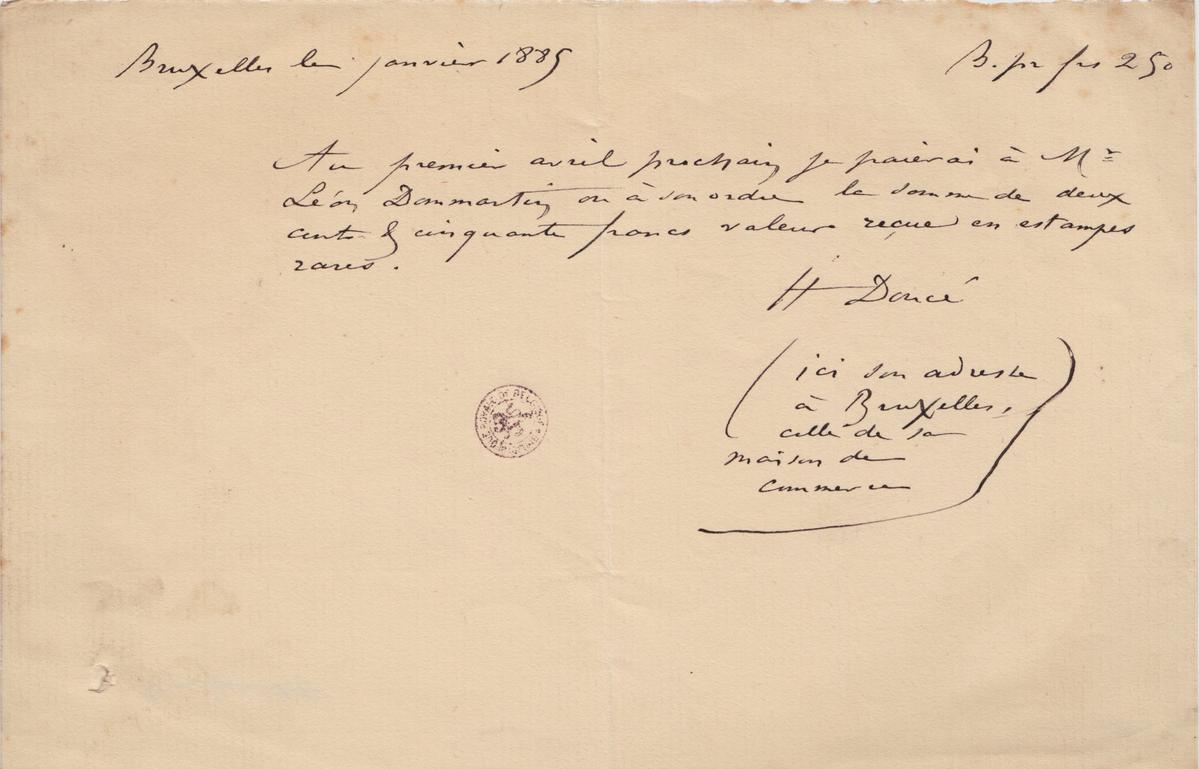 Bruxelles le janvier 1885
B. pr frs 250
Au premier avril prochain je paierai à Mr
Léon Dommartin ou à son ordre la somme de deux
cents & cinquante francs valeur reçue en estampes
rares.
H Doucé
(ici son adresse
à Bruxelles,
celle de sa
maison de
commerce)